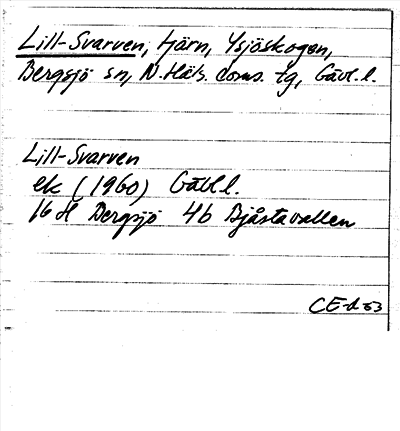 Lill-Svarven, tjärn, Ysjöskogen,
Bergsjö sn, N. Häls. doms. tg, Gävl. l.
Lill-Svarven
ek (1960) Gävl l.
16 H Bergsjö 4b Bjåstavallen
CE-d 53